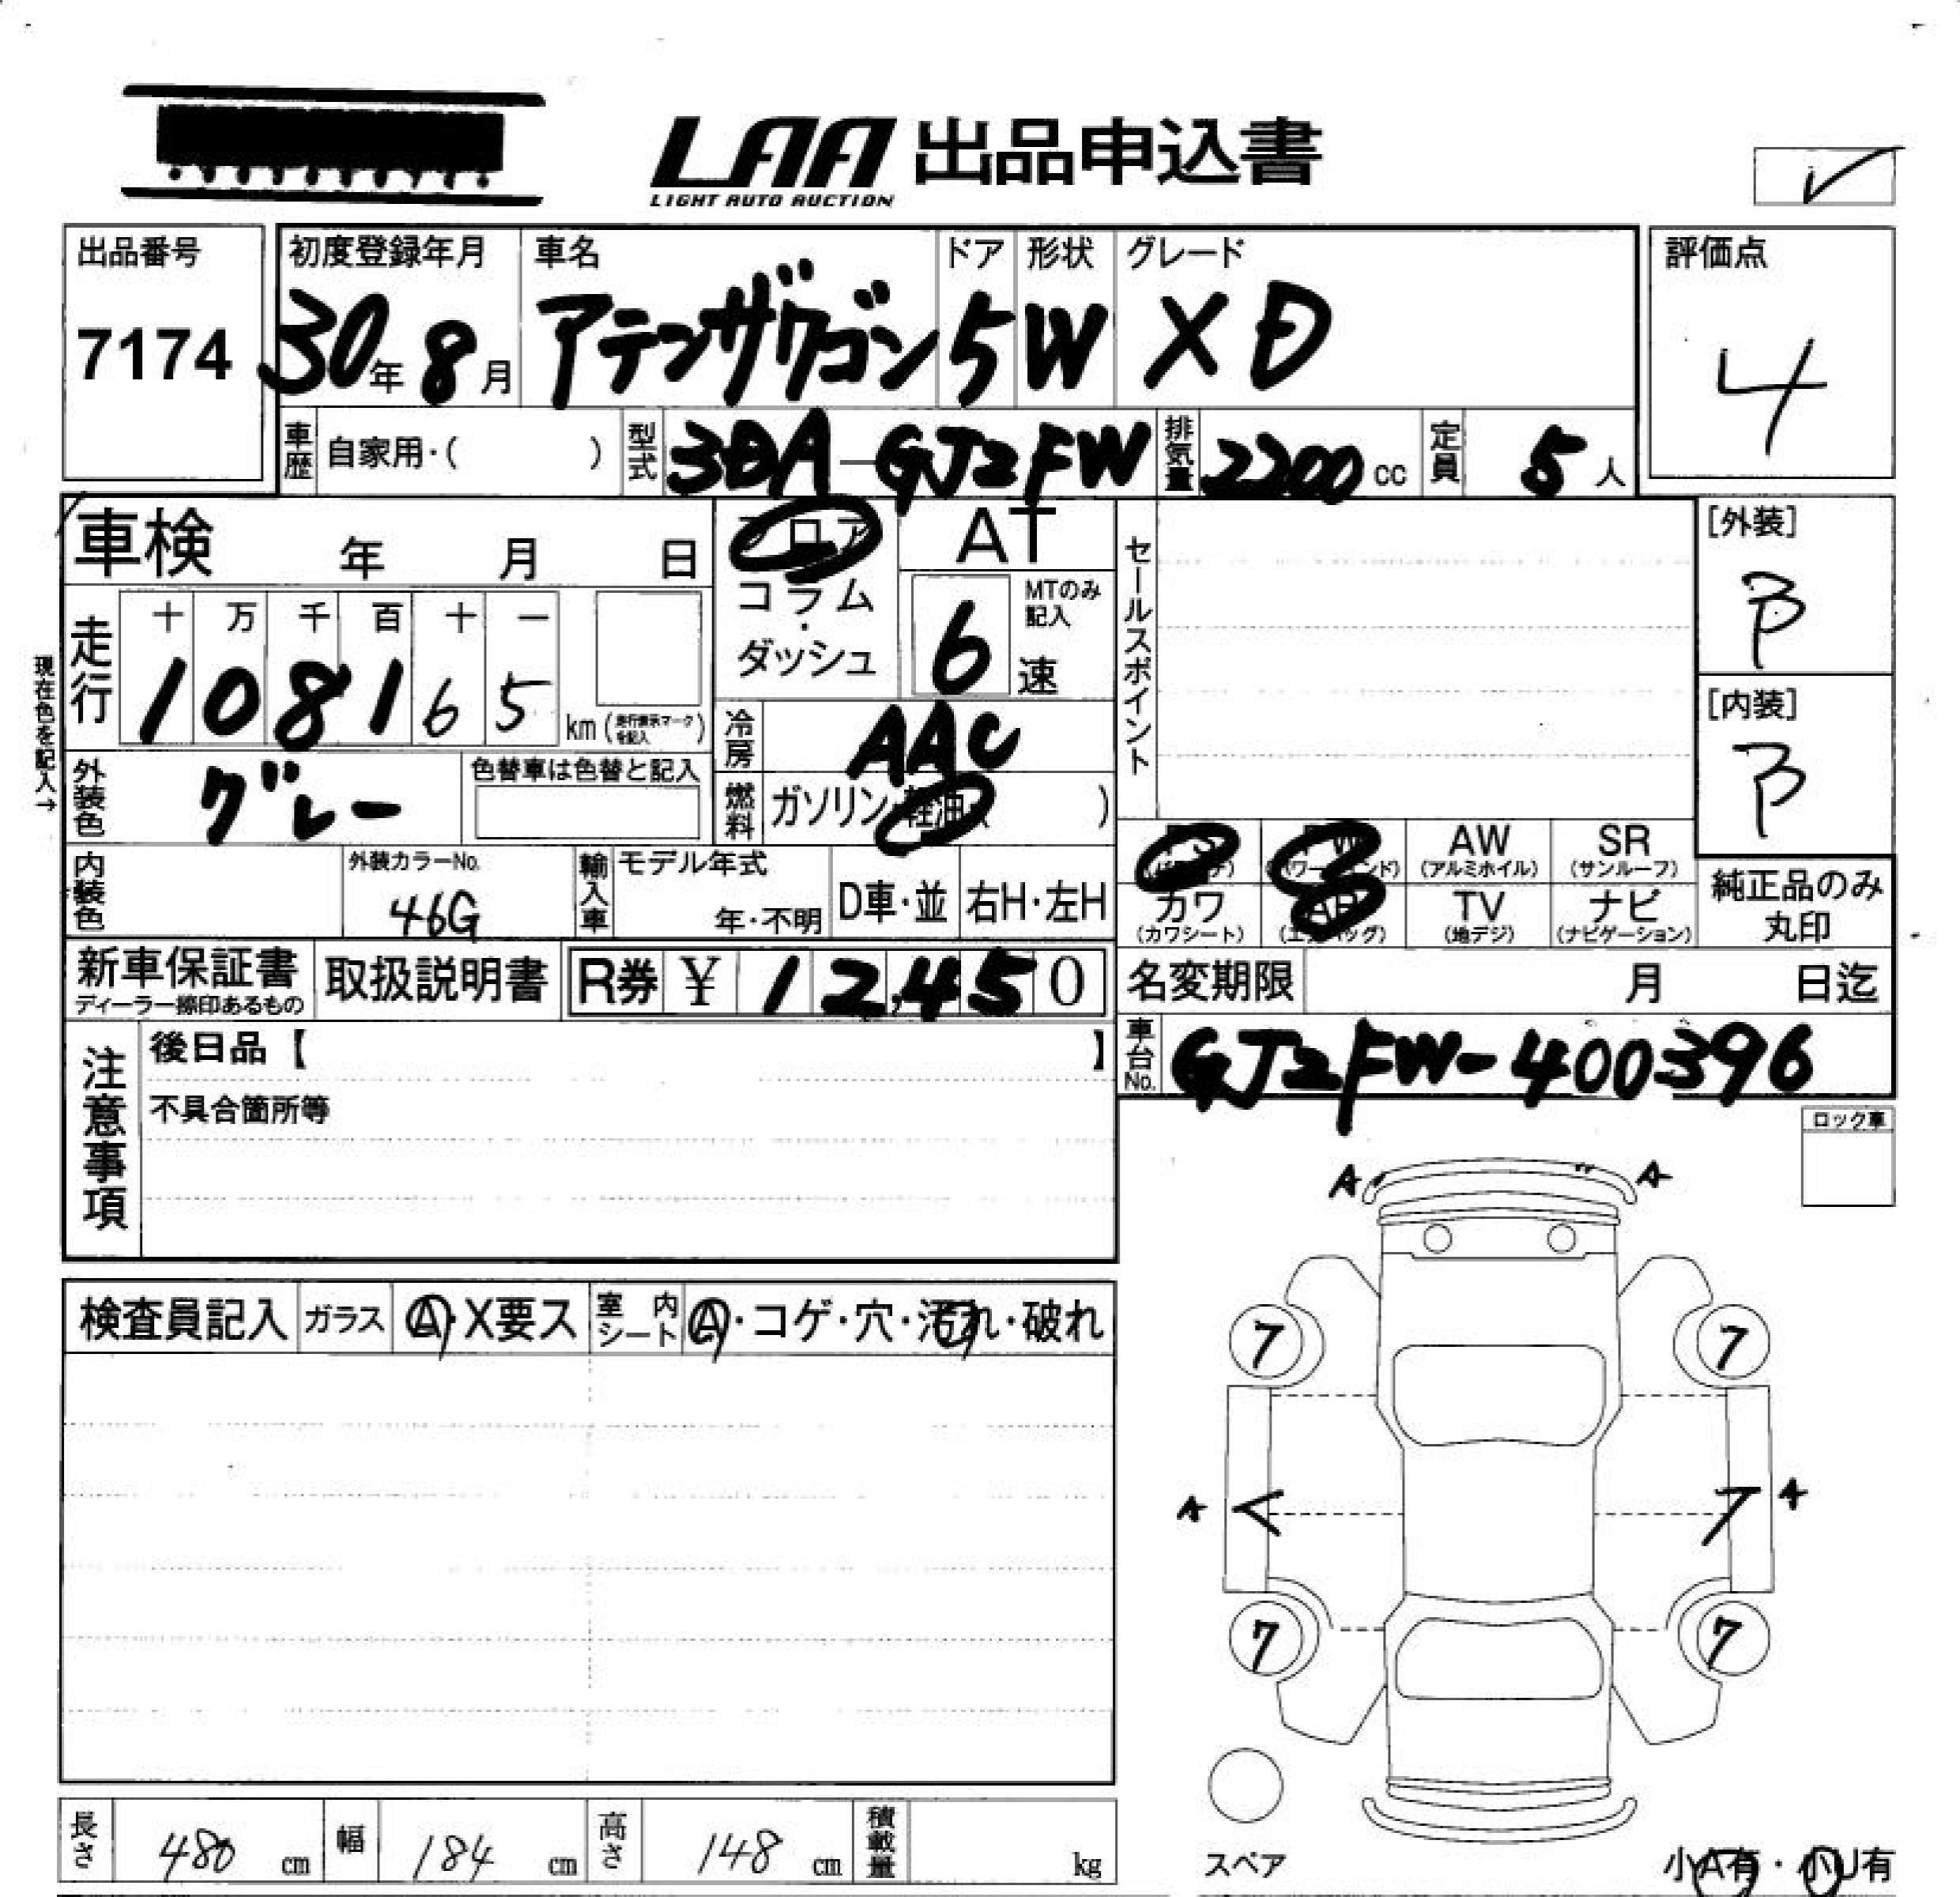 LAA 出品申込書
LIGHT AUTO AUCTION
出品番号
7174
初度登録年月
30年 8月
車名
アテンザワゴン
ドア
5
形状
W
グレード
XD
評価点
4
車歴 自家用・( )
型式 3DA-GJ2FW
排気量 2200 cc
定員 5 人
車検 年 月 日
フロア
コラム
・
ダッシュ
AT
6 速
MTのみ
記入
セールスポイント
[外装]
B
[内装]
B
現在色を記入→
走行
十 万 千 百 十 一
1 0 8 1 6 5
km (走行表示マークを記入)
冷房 AAC
燃料 ガソリン・軽油・( )
外装色 グレー
色替車は色替と記入
内装色
外装カラーNo.
46G
輸入車
モデル年式
年・不明
D車・並
右H・左H
PS (パワステ)
PW (パワーウインド)
AW (アルミホイル)
SR (サンルーフ)
カワ (カワシート)
AB (エアバッグ)
TV (地デジ)
ナビ (ナビゲーション)
純正品のみ
丸印
新車保証書
ディーラー捺印あるもの
取扱説明書
R券 ¥ 12,450
名変期限 月 日迄
車台No. GJ2FW-400396
注意事項
後日品【 】
不具合箇所等
ロック車
A A
7 7
A A
7 7
スペア
小A有・小U有
検査員記入
ガラス A・X要ス
室内シート A・コゲ・穴・汚れ・破れ
長さ 480 cm
幅 184 cm
高さ 148 cm
積載量 kg